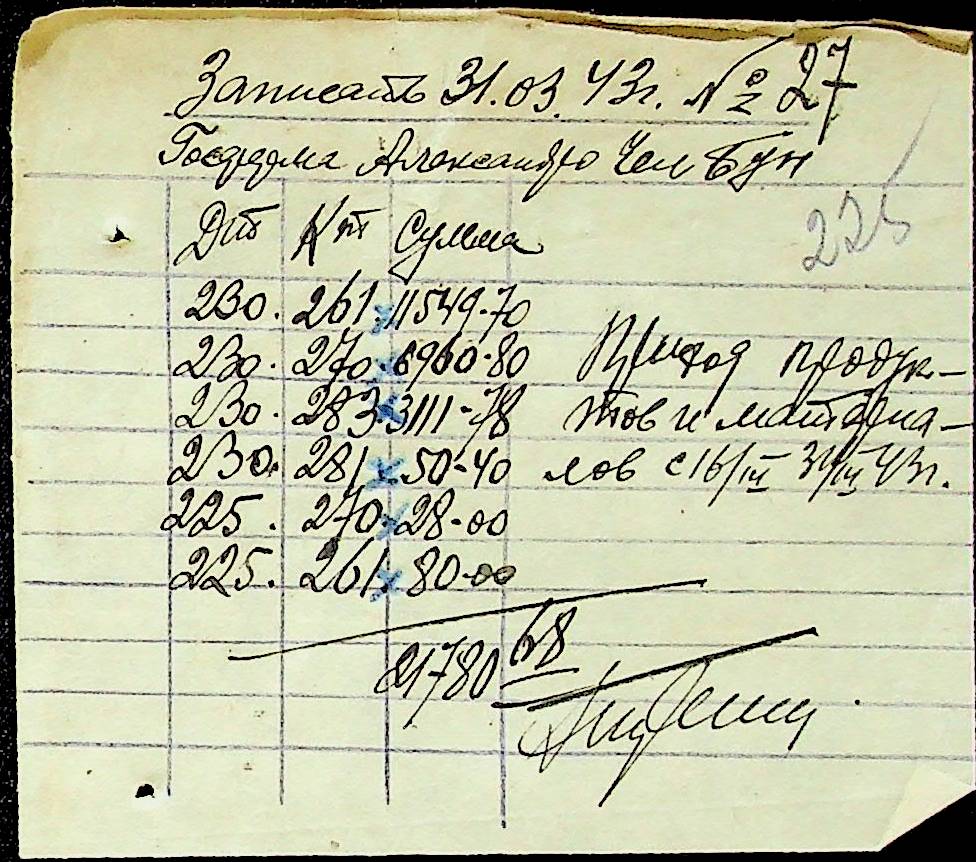 Записать 31.03.43г. № 27
Александро Чел Бун
225
Дт Кт Сумма
230. 261. 11549-70
230. 270. 6960-80
230. 283. 3111-78
230. 281. 50-40
225. 270. 28-00
225. 261. 80-00
Приход продук-
тов и материа-
лов с 16/III 31/III 43г.
21780 68